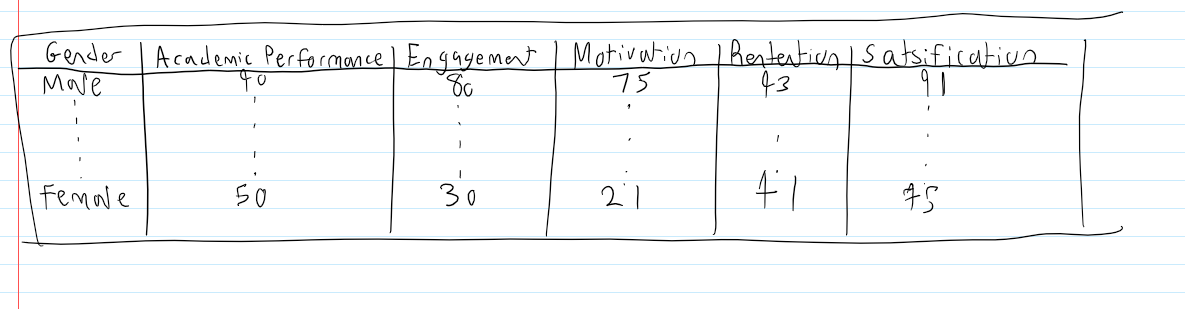 Gender Academic Performance Engagement Motivation Rentention Satsification
Male 40 80 75 43 91
Female 50 30 21 41 45